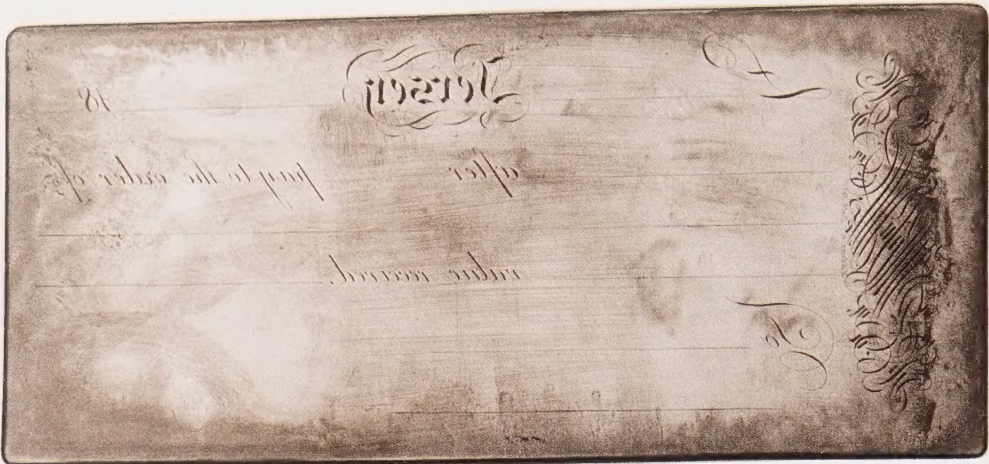 £ Jersey 18
after pay to the order of
value received.
To